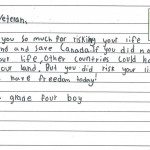 Veteran,
you so much for risking your life
and and save Canada. If you did no
our life. Other countries could ha
our land. But you did risk your li
have freedom today!
grade four boy